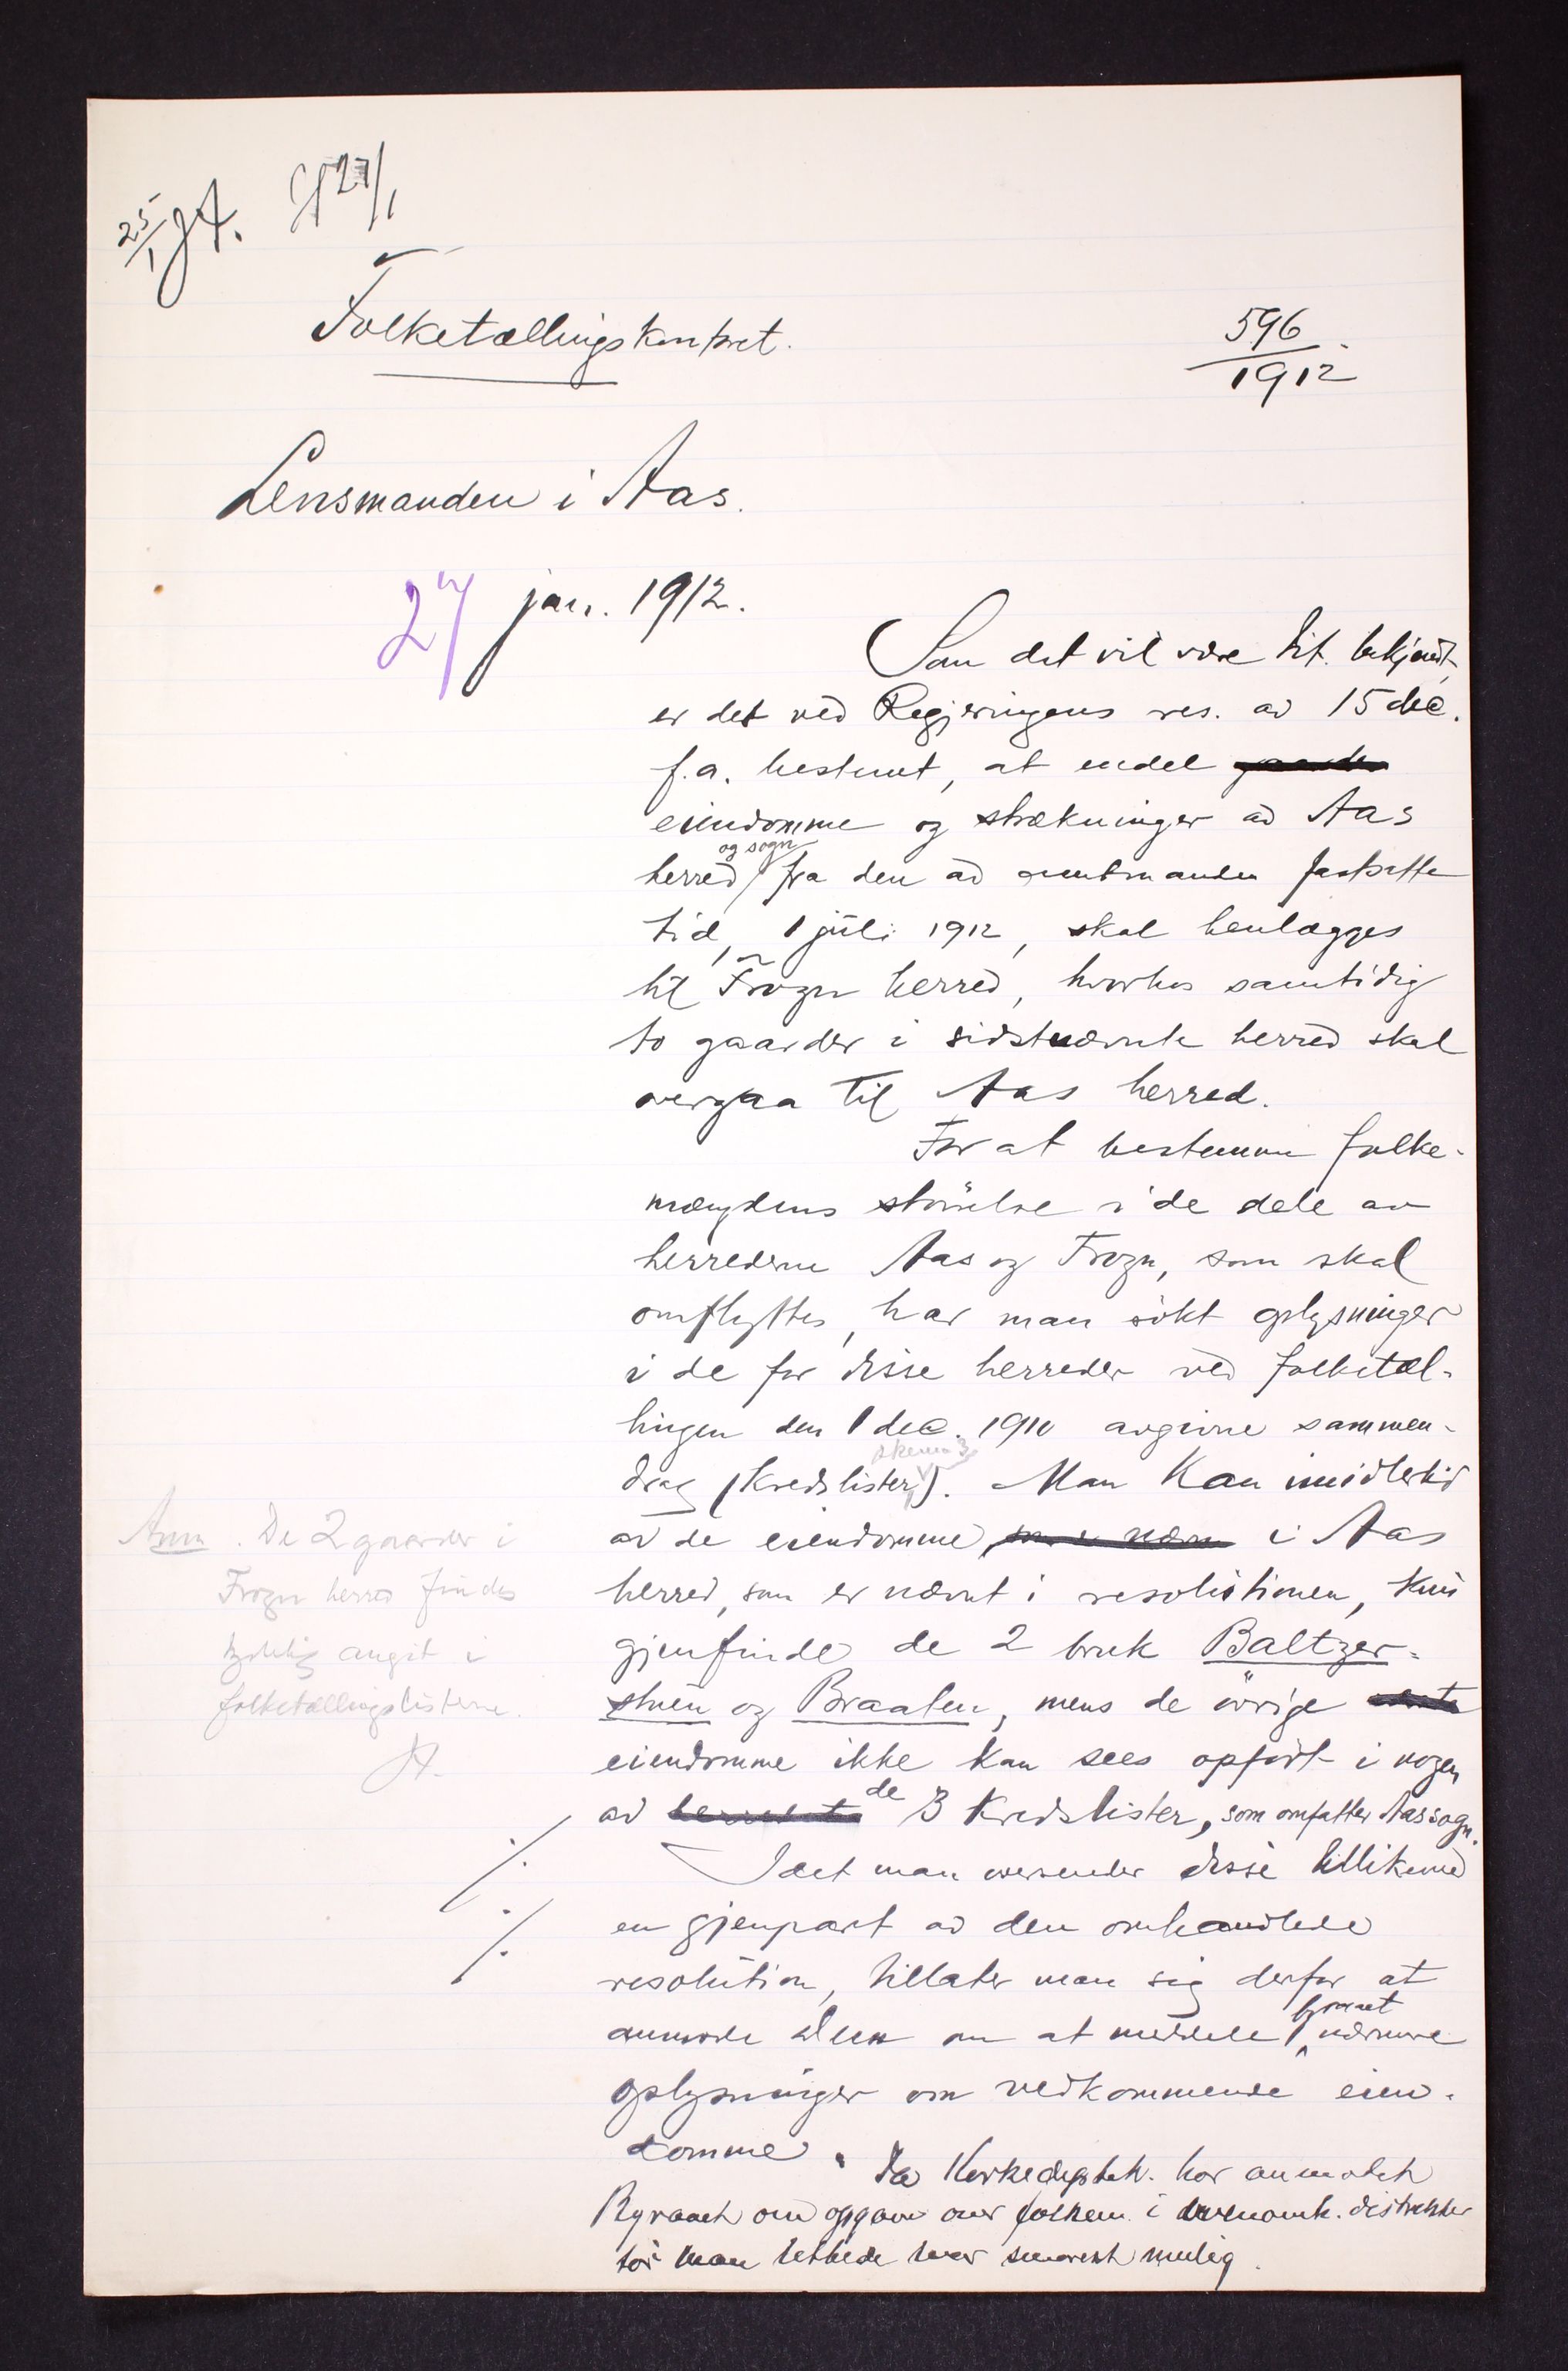 25/1 JA. 27/1
Folketællingskontoret.
596/1912
Lensmanden i Aas.
27 jan. 1912.
Som det vil være Dt. bekjendt,
er det ved Regjeringens res. av 15 dec.
f.a. bestemt, at endel gaarder
eiendomme og strækninger av Aas
herred og sogn fra den av amtmanden fastsatte
tid, 1 juli 1912, skal henlægges
til Frogn herred, hvorhos samtidig
to gaarder i sidstnævnte herred skal
overgaa til Aas herred.
For at bestemme folke-
mængdens størrelse i de dele av
herrederne Aas og Frogn, som skal
omflyttes, har man søkt oplysninger
i de for disse herreder ved folketæl-
lingen den 1 dec. 1910 avgivne sammen-
drag (Kredslister skema 3). Man kan imidlertid
av de eiendomme, i Aas
herred, som er nævnt i resolutionen, kun
gjenfinde de 2 bruk Baltzer-
stuen og Braaten, mens de øvrige
eiendomme ikke kan sees opført i nogen
av de 3 Kredslister, som omfatter Aas sogn.
Idet man oversender disse tillikemed
en gjenpart av den omhandlede
resolution, tillater man sig derfor at
anmode Dem om at meddele Byraaet nærmere
oplysninger om vedkommende eien-
domme. Da Kirkedept. har anmodet
Byraaet om opgave over folkem. i ovennævnte distrikter
tør man utbede svar snarest mulig.
Anm. De 2 gaarder i
Frogn herred findes
tydelig angit i
folketællingslisterne.
A.